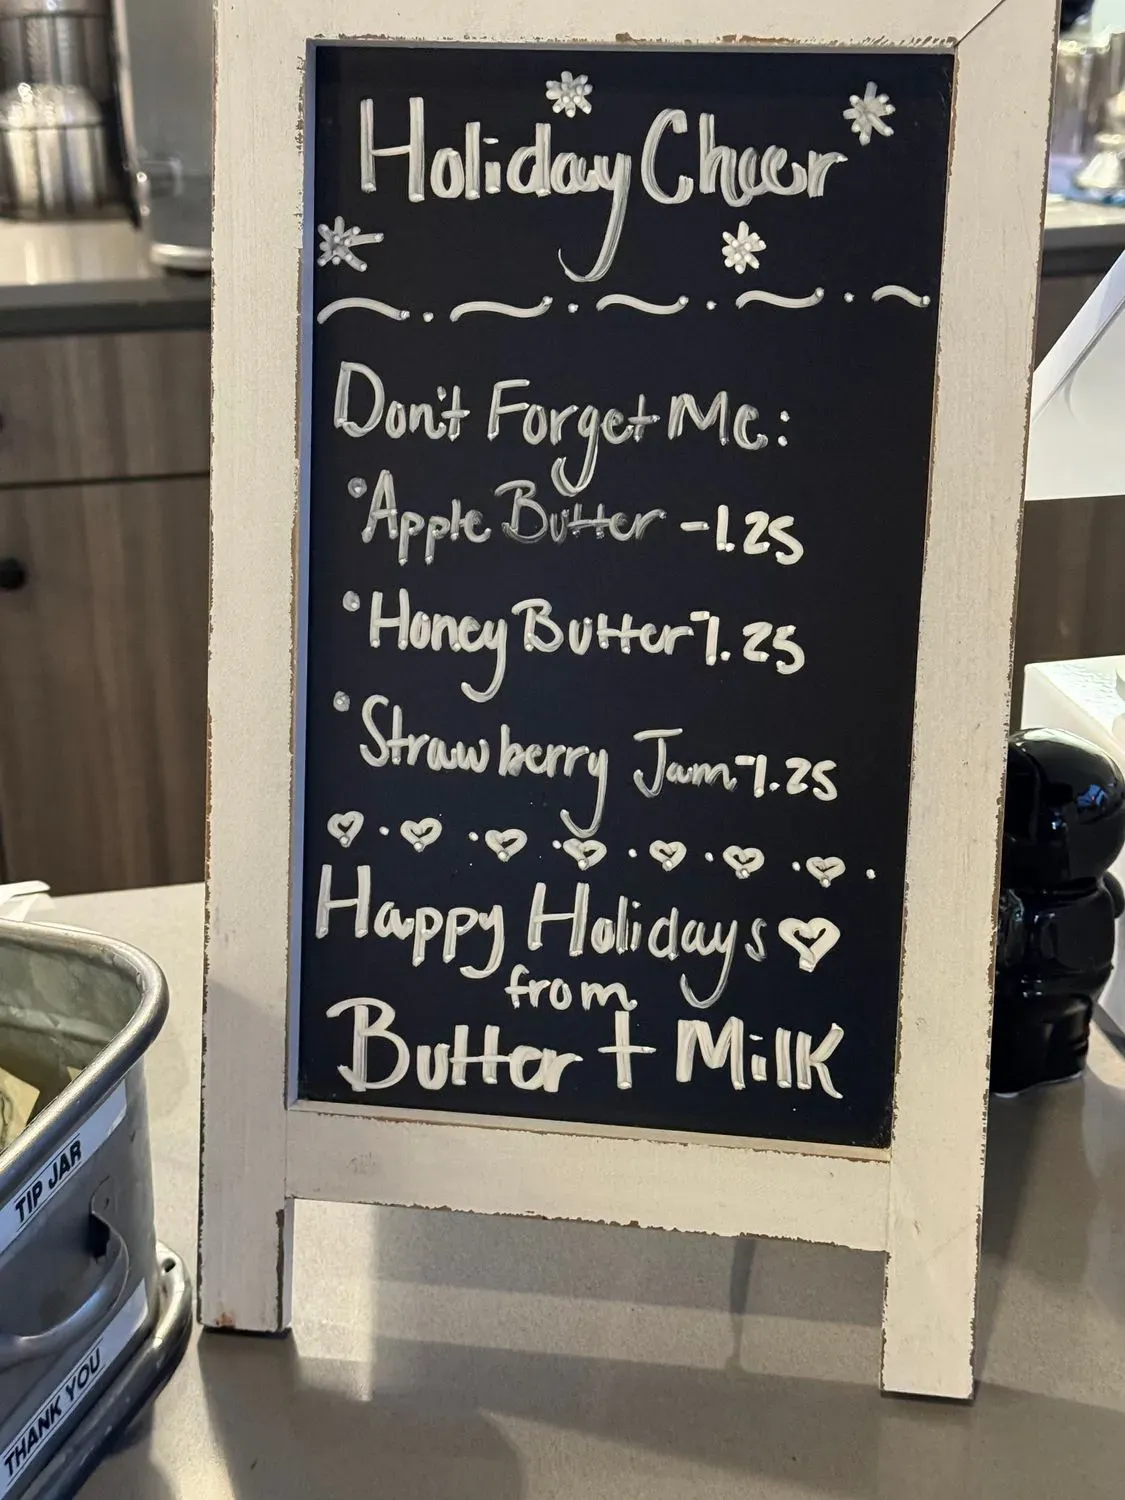 Holiday Cheer
Don't Forget Me:
• Apple Butter - 1.25
• Honey Butter - 1.25
• Strawberry Jam - 1.25
Happy Holidays ♡
from
Butter + Milk
TIP JAR
THANK YOU